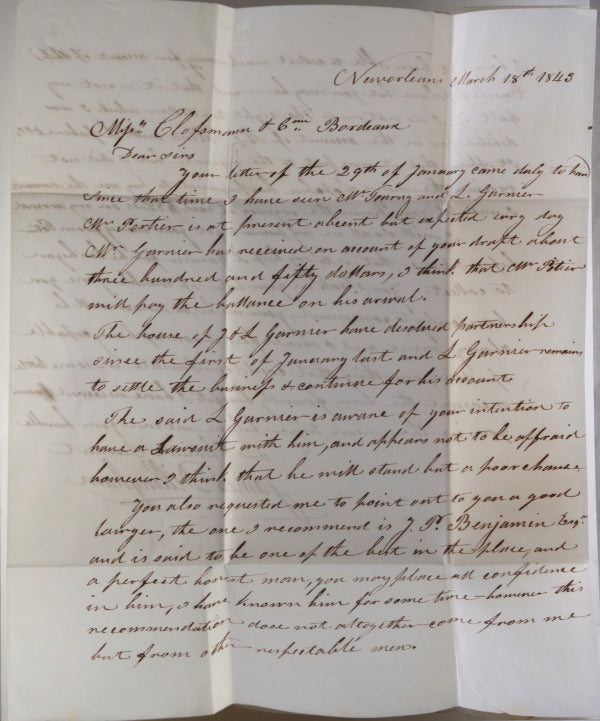 Neworleans March 18th 1843
Messrs Clossmann & Cie Bordeaux
Dear Sirs
Your letter of the 29th of January came duly to hand
since that time I have seen Mr Tourny and L. Garnier
Mr Portier is at present absent but expected evry day
Mr Garnier has received on account of your draft about
three hundred and fifty dollars, I think that Mr Potier
will pay the ballance on his arival.
The house of J & L Garnier have desolved partnership
since the first of Januarary last and L. Garnier remains
to settle the business & continue for his account
The said L Garnier is aware of your intention to
have a Lawsuit with him, and appears not to be affraid
however I think that he will stand but a poor chance.
You also requested me to point out to you a good
lawyer, the one I recommend is J. P. Benjamin Esqr
and is said to be one of the best in the place, and
a perfect honest man, you may place all confidence
in him, I have known him for some time - however this
recommendation dose not altogether come from me
but from other respectable men.